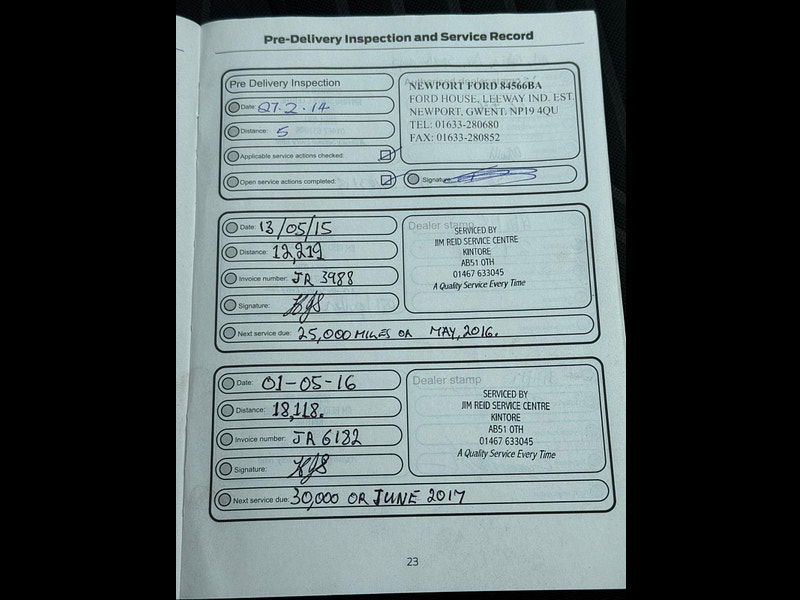 Pre-Delivery Inspection and Service Record
Pre Delivery Inspection
Date: 27.2.14
Distance: 5
Applicable service actions checked.
Open service actions completed.
Authorised dealer stamp
NEWPORT FORD 84566BA
FORD HOUSE, LEEWAY IND. EST.
NEWPORT, GWENT, NP19 4QU
TEL: 01633-280680
FAX: 01633-280852
Signature:
Date: 13/05/15
Distance: 12,219
Invoice number: JR 3988
Signature:
Next service due: 25,000 MILES OR MAY, 2016.
Dealer stamp
SERVICED BY
JIM REID SERVICE CENTRE
KINTORE
AB51 0TH
01467 633045
A Quality Service Every Time
Date: 01-05-16
Distance: 18,118.
Invoice number: JR 6182
Signature:
Next service due: 30,000 OR JUNE 2017
Dealer stamp
SERVICED BY
JIM REID SERVICE CENTRE
KINTORE
AB51 0TH
01467 633045
A Quality Service Every Time
23